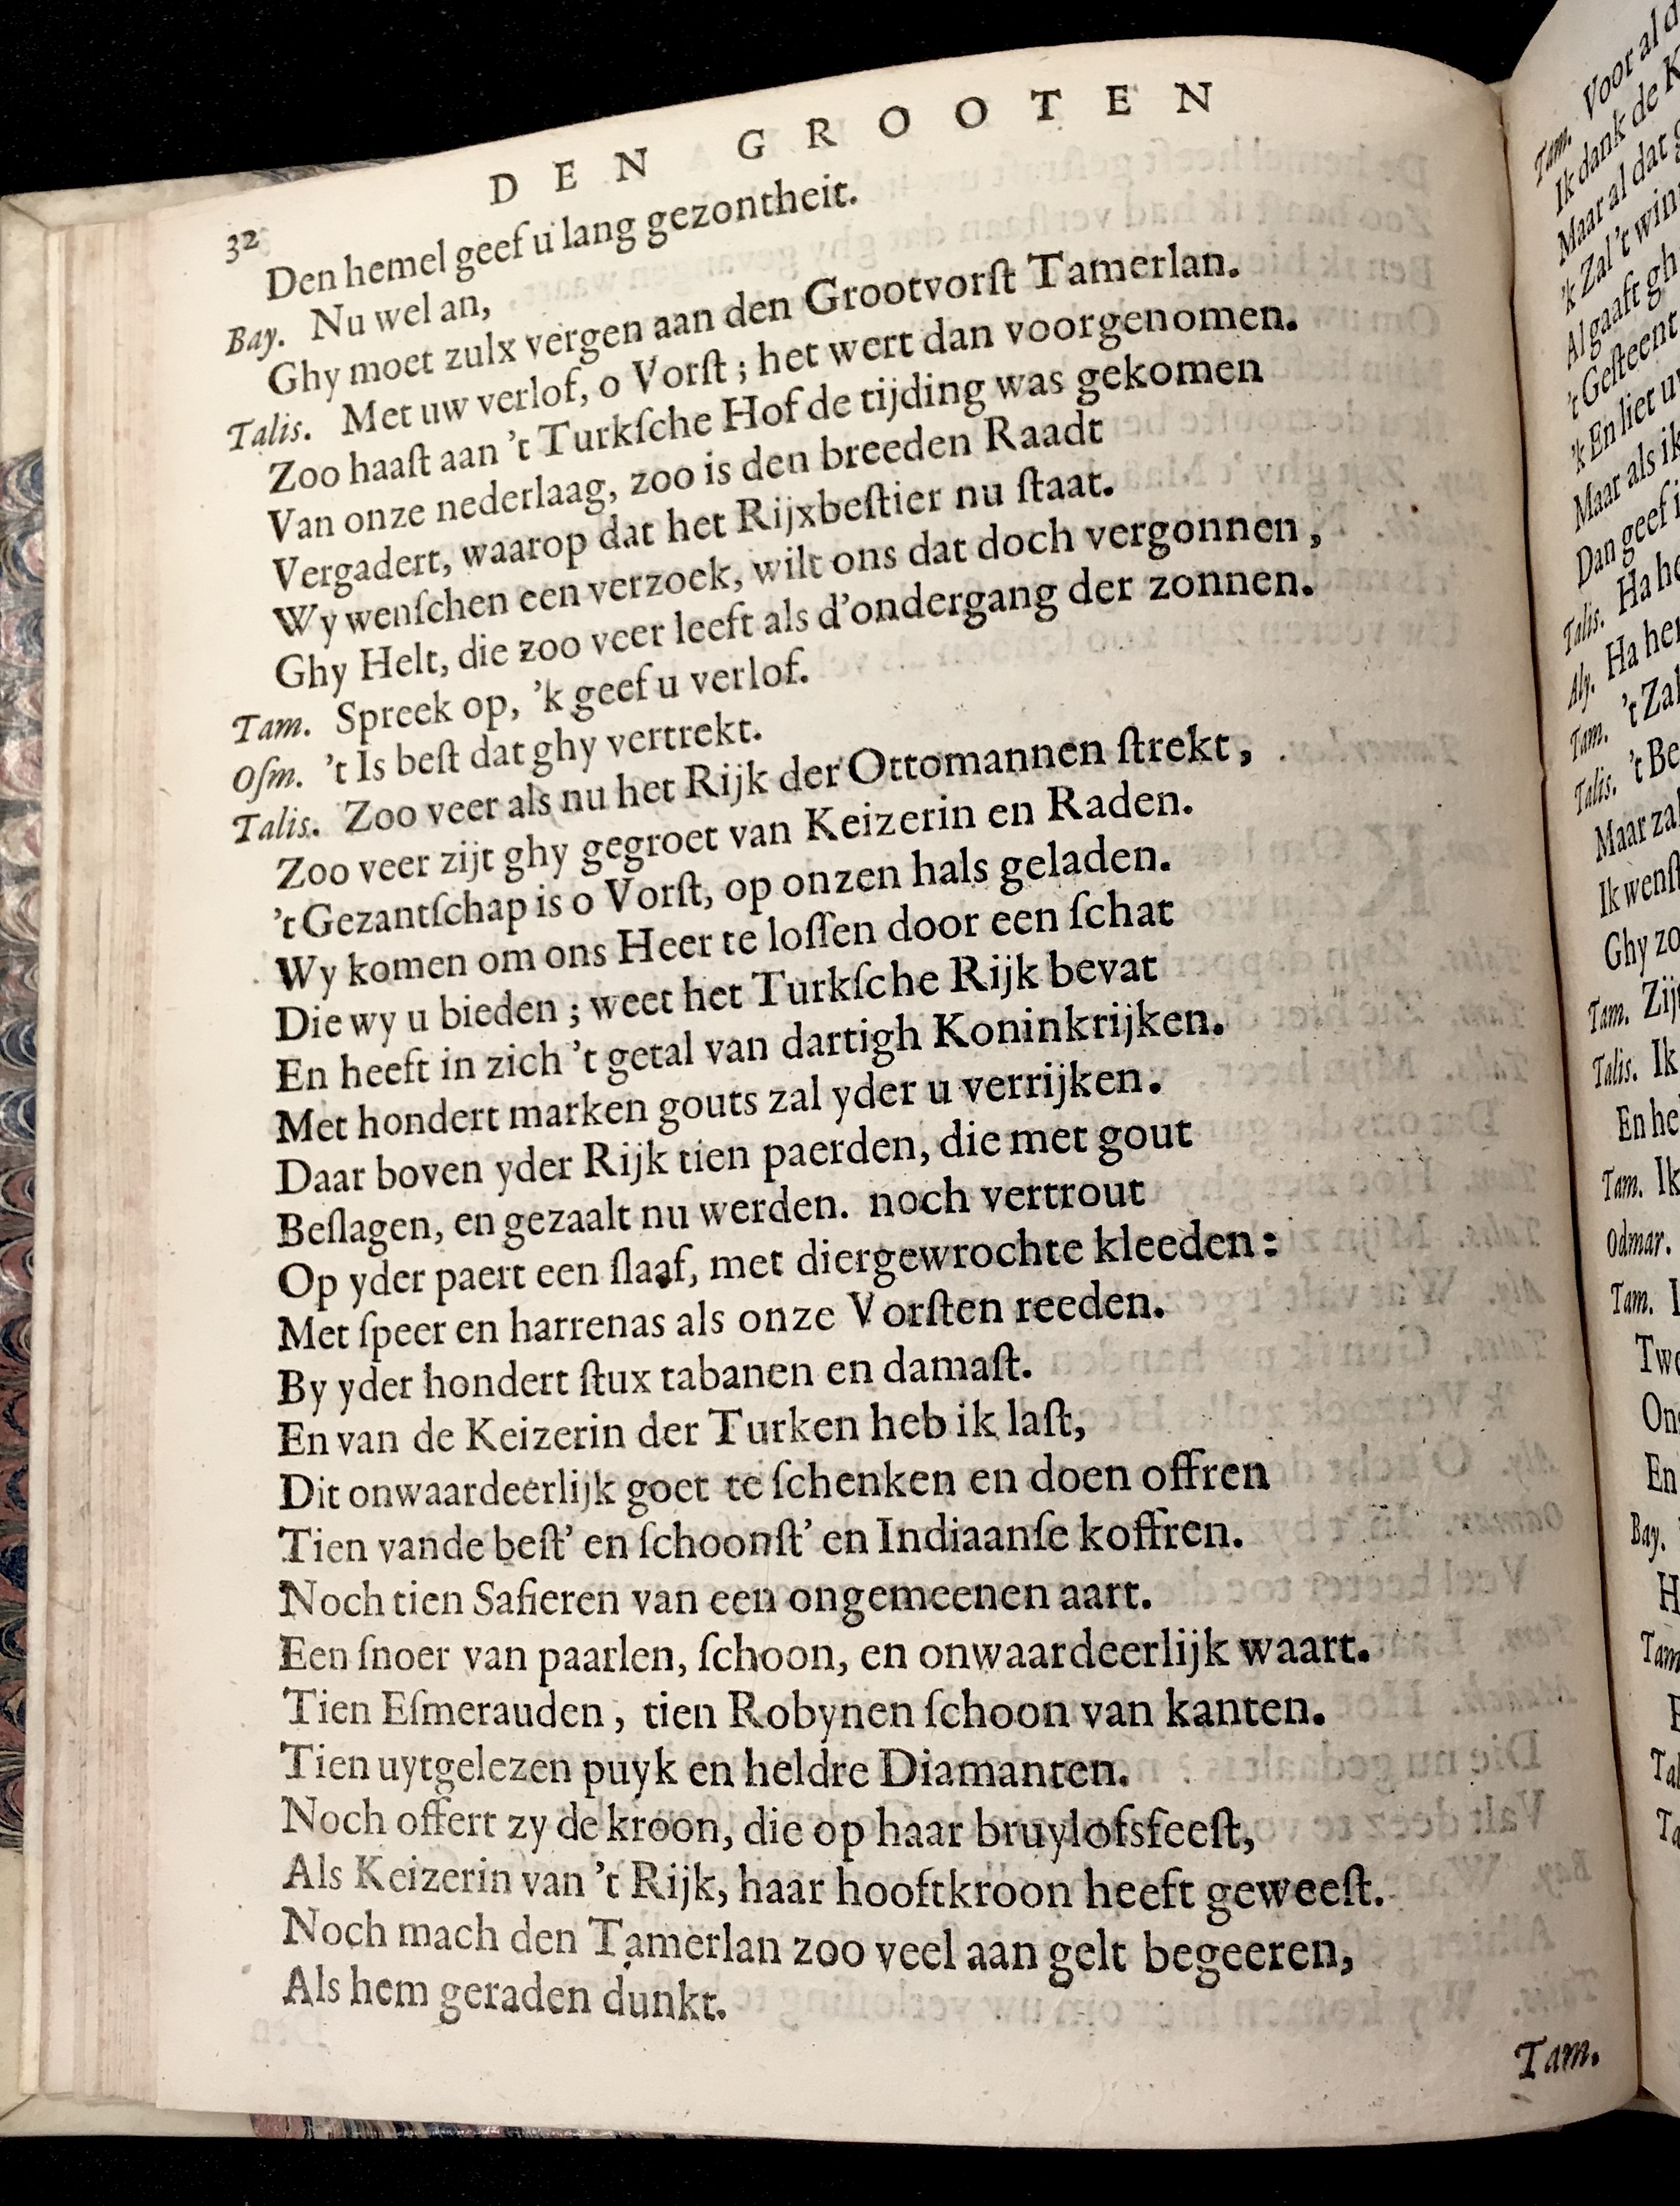 32 DEN GROOTEN
Den hemel geef u lang gezontheit.
Bay. Nu wel an,
Ghy moet zulx vergen aan den Grootvorſt Tamerlan.
Talis. Met uw verlof, o Vorſt ; het wert dan voorgenomen.
Zoo haaſt aan 't Turkſche Hof de tijding was gekomen
Van onze nederlaag, zoo is den breeden Raadt
Vergadert, waarop dat het Rijxbeſtier nu ſtaat.
Wy wenſchen een verzoek, wilt ons dat doch vergonnen ,
Ghy Helt, die zoo veer leeft als d'ondergang der zonnen.
Tam. Spreek op, 'k geef u verlof.
Oſm. 't Is beſt dat ghy vertrekt.
Talis. Zoo veer als nu het Rijk der Ottomannen ſtrekt ,
Zoo veer zijt ghy gegroet van Keizerin en Raden.
't Gezantſchap is o Vorſt, op onzen hals geladen.
Wy komen om ons Heer te loſſen door een ſchat
Die wy u bieden ; weet het Turkſche Rijk bevat
En heeft in zich 't getal van dartigh Koninkrijken.
Met hondert marken gouts zal yder u verrijken.
Daar boven yder Rijk tien paerden, die met gout
Beſlagen, en gezaalt nu werden. noch vertrout
Op yder paert een ſlaaf, met diergewrochte kleeden :
Met ſpeer en harrenas als onze Vorſten reeden.
By yder hondert ſtux tabanen en damaſt.
En van de Keizerin der Turken heb ik laſt,
Dit onwaardeerlijk goet te ſchenken en doen offren
Tien vande beſt' en ſchoonſt' en Indiaanſe koffren.
Noch tien Safieren van een ongemeenen aart.
Een ſnoer van paarlen, ſchoon, en onwaardeerlijk waart.
Tien Eſmerauden , tien Robynen ſchoon van kanten.
Tien uytgelezen puyk en heldre Diamanten.
Noch offert zy de kroon, die op haar bruylofsfeeſt,
Als Keizerin van 't Rijk, haar hooftkroon heeft geweeſt.
Noch mach den Tamerlan zoo veel aan gelt begeeren,
Als hem geraden dunkt.
Tam.
Tam. Voor al
Ik dank de
Maar al dat
'k Zal 't
Al gaaft
't Geſteent
'k En liet
Maar als ik
Dan geef
Talis. Ha
Aly. Ha
Tam.
Talis.
Maar
Ik
Ghy
Tam.
Talis. Ik
En
Tam. Ik
Odmar.
Tam.
En
Bay.